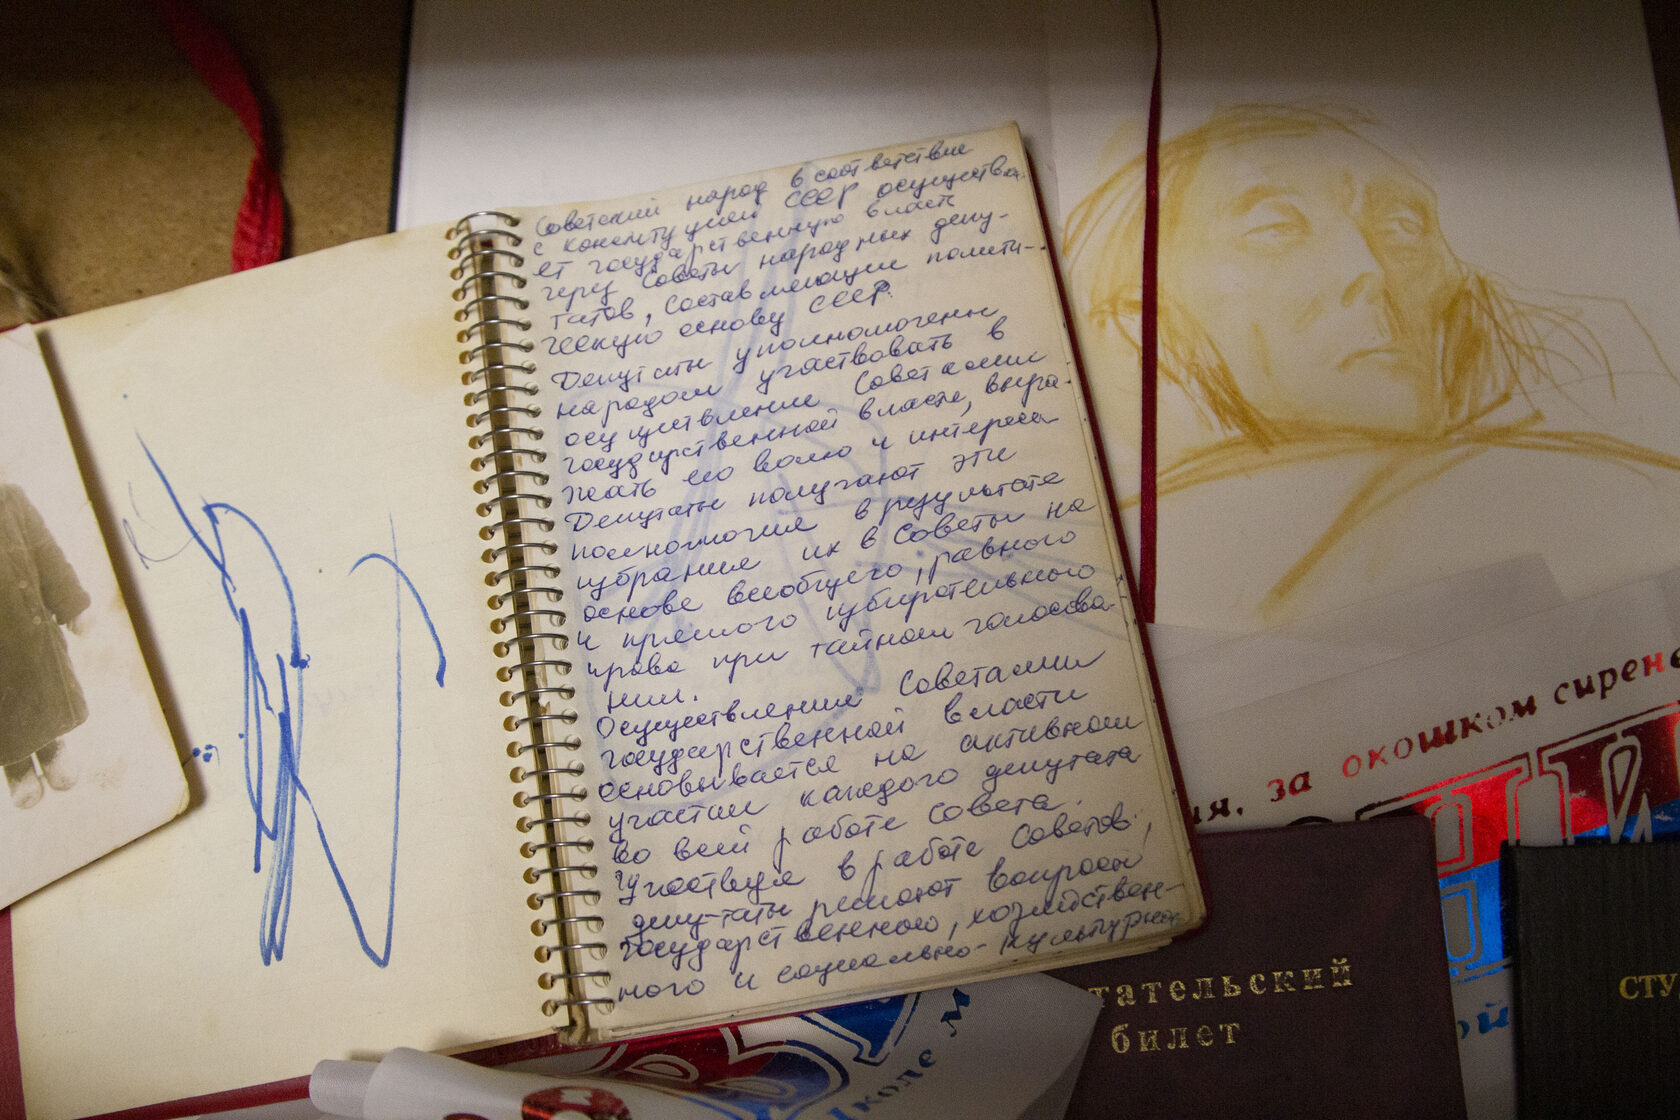 Советский народ в соответствие
с конституцией СССР осуществля-
ет государственную власть
через Советы народных депу-
татов, составляющие полити-
ческую основу СССР.
Депутаты уполномочены
народом участвовать в
осуществлении Советами
государственной власти, выра-
жать его волю и интересы
Депутаты получают эти
полномочия в результате
избрания их в Советы на
основе всеобщего, равного
и прямого избирательного
права при тайном голосова-
нии.
Осуществление Советами
государственной власти
основывается на активном
участии каждого депутата
во всей работе Совета.
Участвуя в работе Советов,
депутаты решают вопросы
государственного, хозяйствен-
ного и социально-культурно
за окошком сирен
тательский
билет
СТУ
школе м
ой